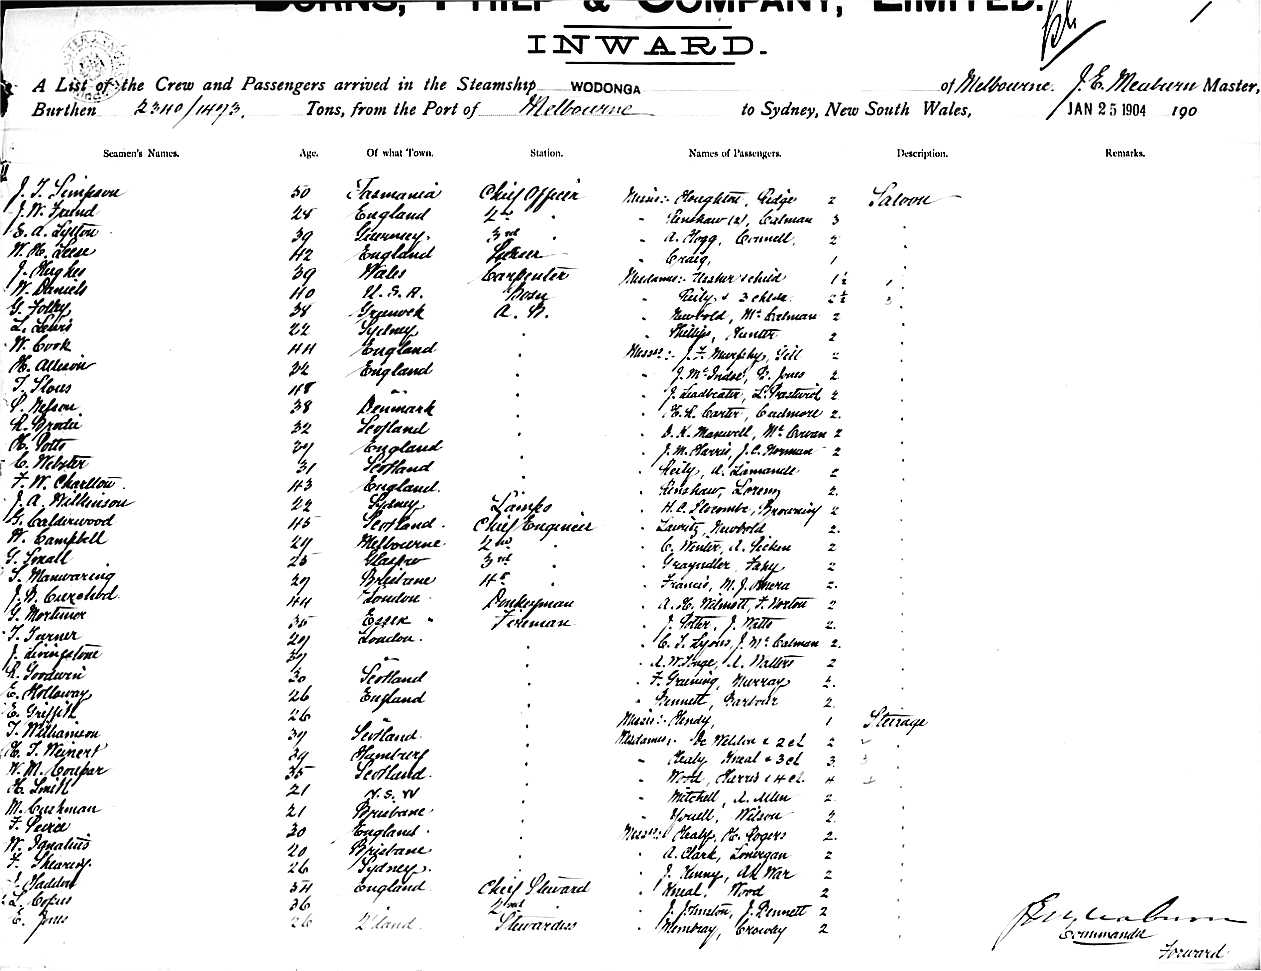 BURNS, PHILP & COMPANY, LIMITED.
INWARD.
A List of the Crew and Passengers arrived in the Steamship WODONGA of Melbourne. J. E. Meaburn Master,
Burthen 2340/1493. Tons, from the Port of Melbourne to Sydney, New South Wales, JAN 25 1904 190
Seamen's Names. Age. Of what Town. Station. Names of Passengers. Description. Remarks.
J. T. Simpson 50 Tasmania Chief Officer Misses:- Houghton, Ridge 2 Saloon
J. W. Friend 28 England 2nd " " Renshaw (2), Calman 3
E. A. Lutton 39 Guernsey. 3rd " " A. Hogg, Connell, 2
W. H. Leese 42 England Purser " Craig, 1
J. Hughes 39 Wales Carpenter Mesdames:- Ussher & child 1½ 1
W. Daniels 40 U.S.A. Bosn " Reily & 3 childn 2½ 3
G. Foley 38 Greenock A. B. " Newbold, McCalman 2
L. Lewis 22 Sydney " Phillips, Hunter 2
W. Cook 44 England Messrs:- J. F. Murphy, Gill 2
H. Allison 32 England " J. McIndoe, Jones 2
T. Slous 48 " " J. Leadbeater, L. Prestwich 2
P. Nelson 38 Denmark " H. R. Carter, Cudmore 2
R. Brodie 32 Scotland " D. K. Maxwell, McCowan 2
H. Potts 39 England " J. M. Harris, J. C. Norman 2
C. Webster 31 Scotland " Reily, A. Lamande 2
F. W. Charlton 43 England. " Renshaw, Lorens 2
J. A. Wilkinson 22 Sydney Lamps " H. C. Slocombe, Browning 2
G. Calderwood 45 Scotland. Chief Engineer " Newbold 2
W. Campbell 29 Melbourne 2nd " " C. Winter, A. 2
G. Small 25 Glasgow 3rd " " Grayndler, Fahy 2
S. Manwaring 29 Brisbane 4th " " Francis, M. J. 2
J. 44 London Donkeyman " A. H. Wilmott, F. Norton 2
G. Mortimer 35 Essex " Fireman " J. Potter, J. Watts 2
T. Turner 29 London. " C. T. Lyons, J. McCalman 2
J. Livingstone 39 " " A. W. Tonge, A. Walters 2
R. Goodwin 30 Scotland " F. Greening, Murray 2
E. Holloway 26 England " Bennett, Barbour 2
E. Griffith 26 " Misses:- Hendy, 1 Steerage
T. Williamson 39 Scotland. Mesdames:- De Weldon & 2 ch 2
H. T. Weinert 39 Hamburg " Healy, Kneal & 3 ch 3 3
W. M. Coupar 35 Scotland " Wood, Harris & 4 ch 4
H. Smith 21 N.S.W " Mitchell, A. Allen 2
M. Cushman 21 Brisbane " Youell, Wilson 2
F. Peirce 30 England. Messrs:- Healy, H. Rogers 2
W. Ignatius 20 Brisbane " A. Clark, Lonergan 2
F. Shearing 26 Sydney. " J. Kenny, 2
Haddon 54 England Chief Steward " Kneal, Wood 2
L. Copus 36 " 2nd " " J. Johnston, J. Bennett 2
E. Jones 26 Stewardess " Membray, Crowley 2
J. E. Meaburn
Commander
Forward